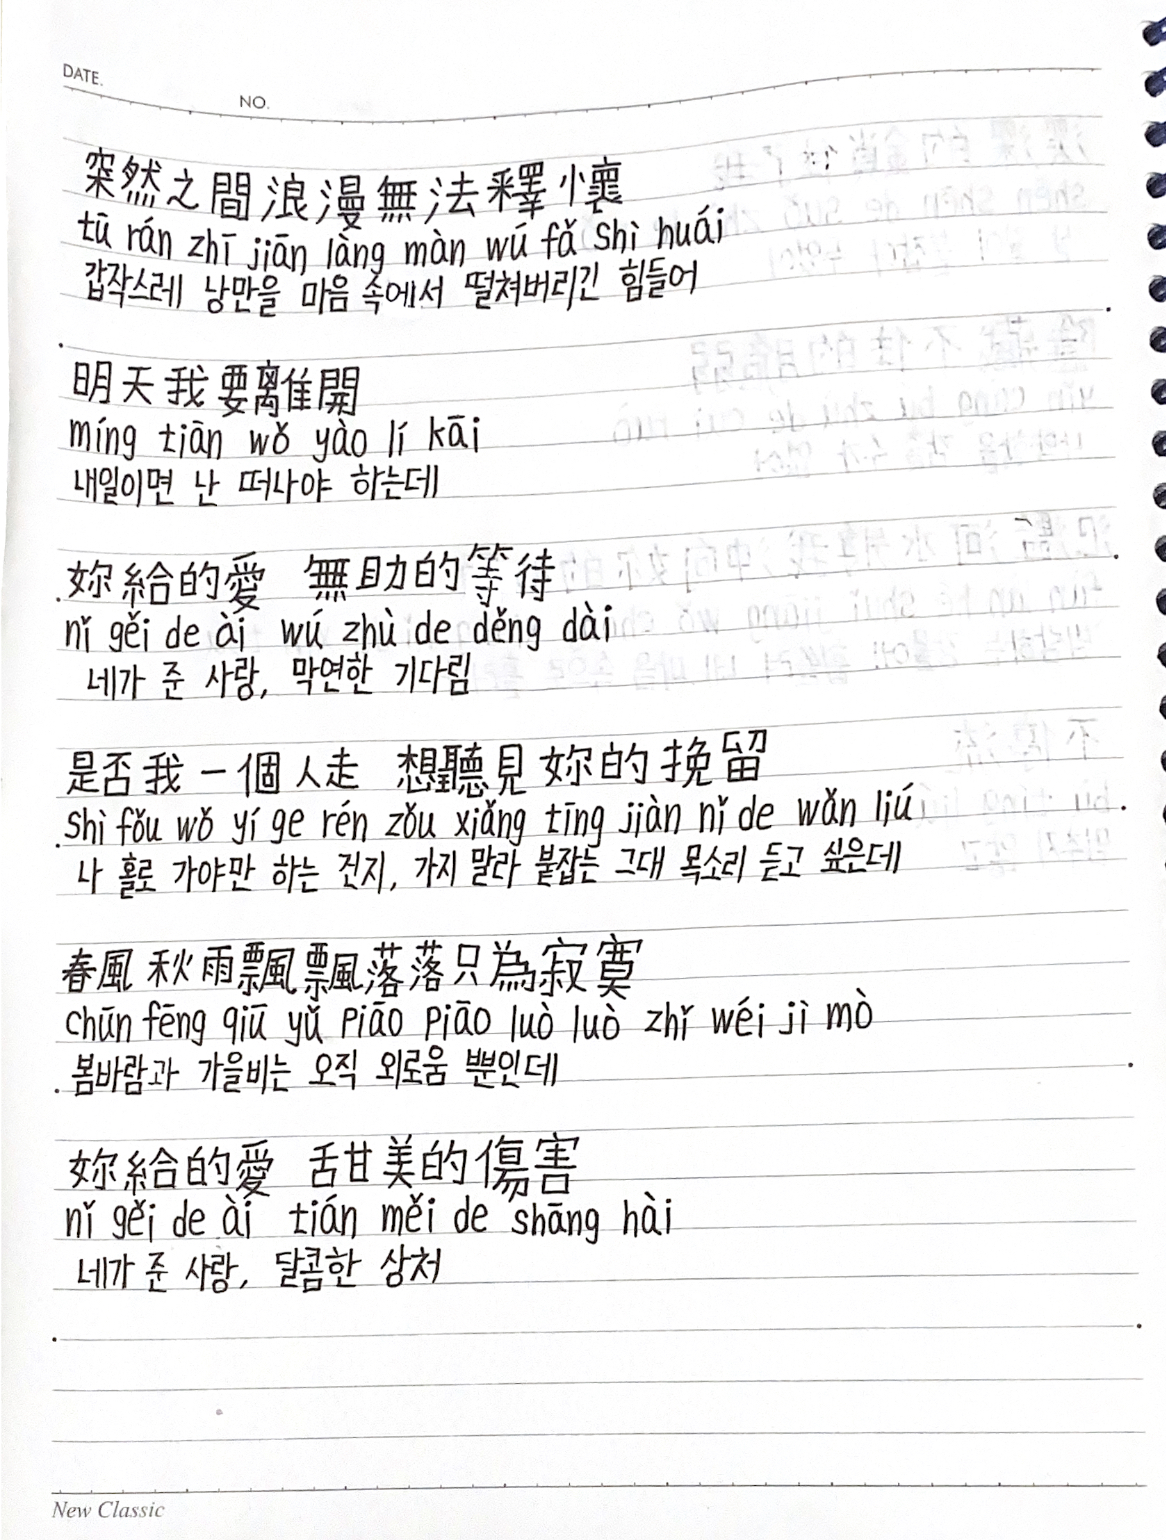 DATE.
NO.
突然之間浪漫無法釋懷
tū rán zhī jiān làng màn wú fǎ shì huái
갑작스레 낭만을 마음 속에서 떨쳐버리긴 힘들어
明天我要離開
míng tiān wǒ yào lí kāi
내일이면 난 떠나야 하는데
妳給的愛 無助的等待
nǐ gěi de ài wú zhù de děng dài
네가 준 사랑, 막연한 기다림
是否我一個人走 想聽見妳的挽留
shì fǒu wǒ yí ge rén zǒu xiǎng tīng jiàn nǐ de wǎn liú
나 홀로 가야만 하는 건지, 가지 말라 붙잡는 그대 목소리 듣고 싶은데
春風秋雨飄飄落落只為寂寞
chūn fēng qiū yǔ piāo piāo luò luò zhǐ wéi jì mò
봄바람과 가을비는 오직 외로움 뿐인데
妳給的愛 甜美的傷害
nǐ gěi de ài tián měi de shāng hài
네가 준 사랑, 달콤한 상처
New Classic